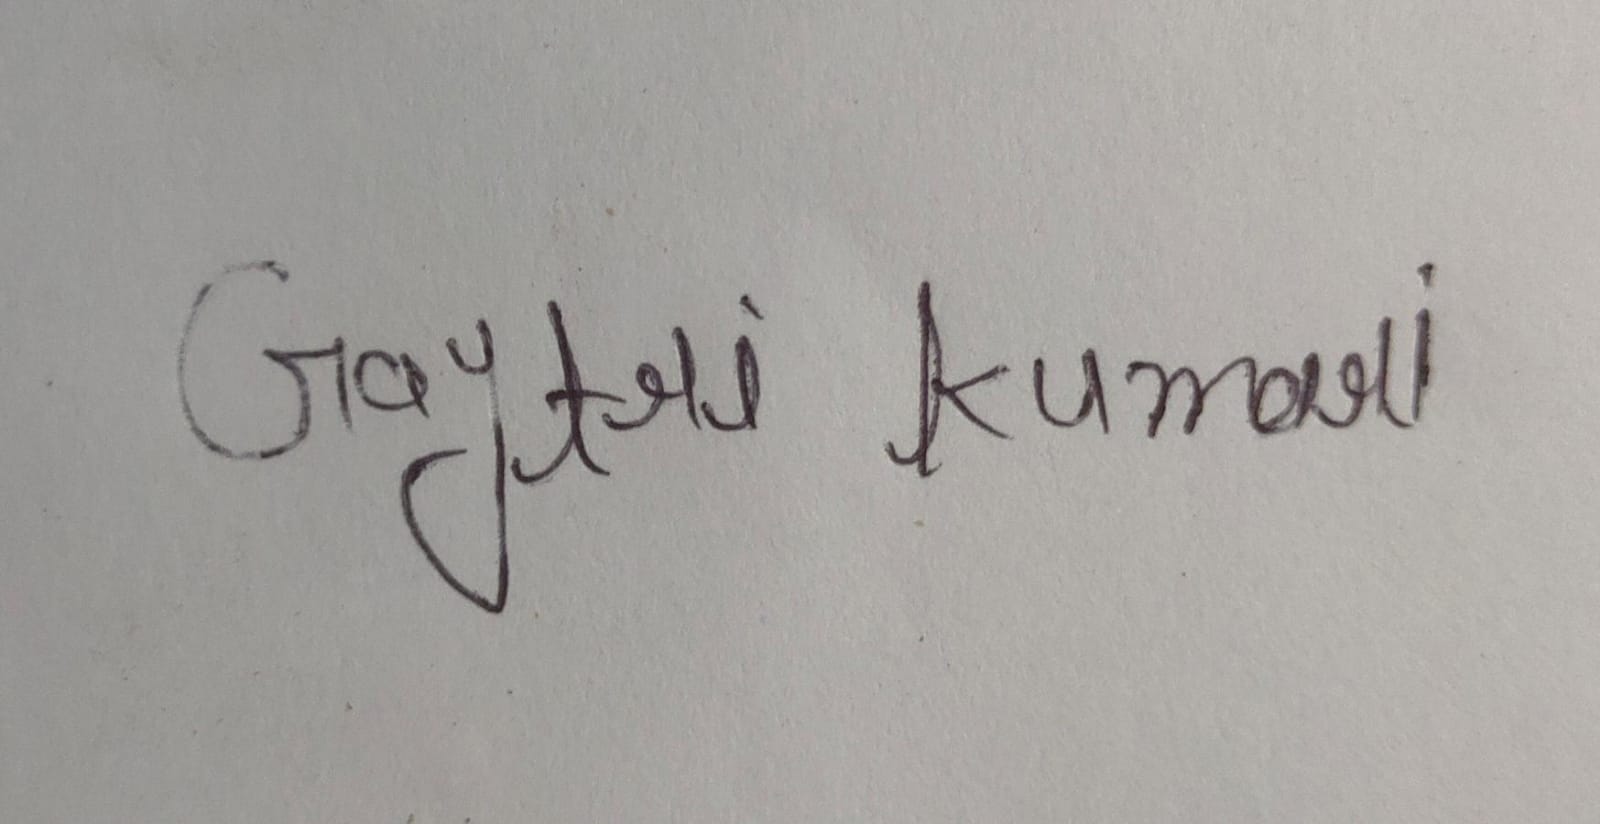 Gaytri Kumari